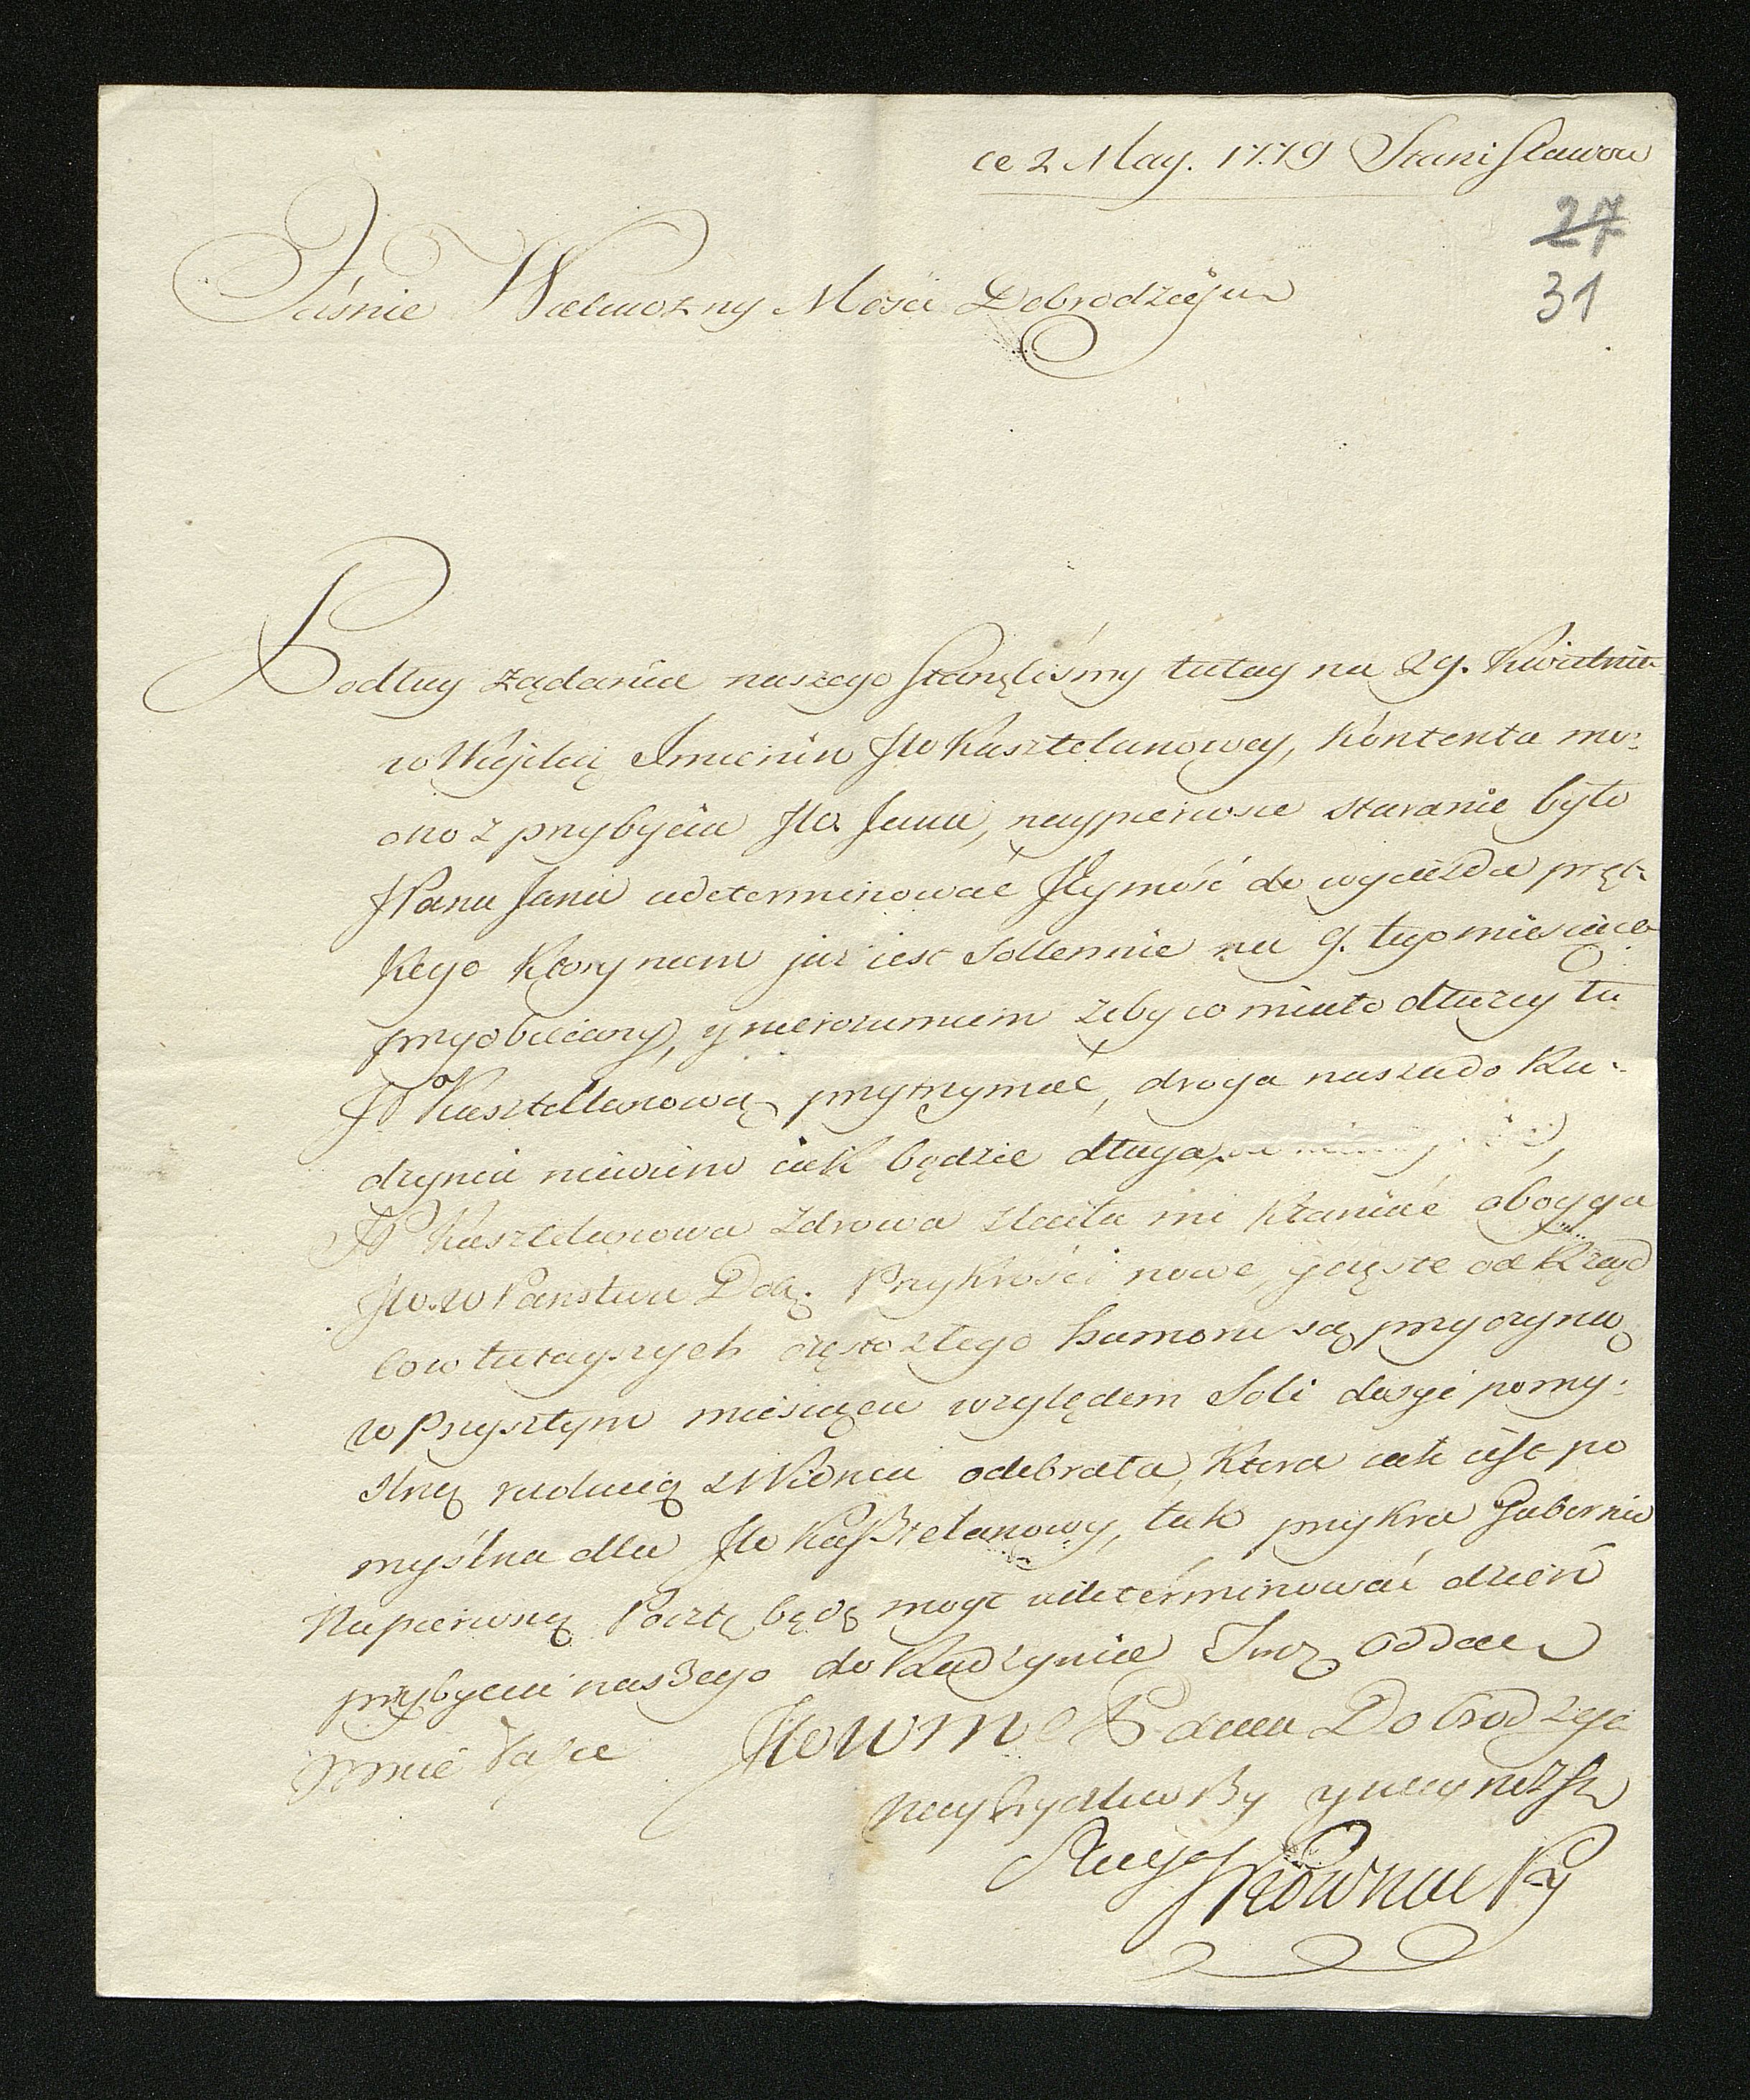 ce 2 May. 1779 Stanisławow
27
31
Jaśnie Wielmożny Mości Dobrodzieju
Podług żądania naszego stanęliśmy tutay na 29. Kwietnia
w Wigilią Imienin JW Kasztelanowey, kontenta mo:
cno z przybycia JW. Jana, naypierwsze staranie było
JPana Jana udeterminować Jeymość do wyiazdu pręt:
kiego ktory nam już iest Sollennie na 9. tego miesiąca
przyobiecany, y nierozumiem żeby co miało dłużey tu
JW Kasztellanową przytrzymać, droga nasza do Ra:
dzynia niewiem iak będzie długa
JW Kasztelanowa zdrowa zleciła mi kłaniać oboyga
JW.W Panstwu Dob. Przykrości nowe, y częste od Rząd
cow tutayszych często złego humoru są przyczyną
w Przyszłym miesiącu względem Soli dosyć pomy:
slną rezolucią z Wiednia odebrała, ktora iak iest po
myślna dla JW Kasztelanowy, tak przykra Gubernio
Na pierwszą Pocztę będę mogł udeterminować dzień
przybycia naszego do Radzynia Imz oddaie
JWWM Pana Dobrodzieja
nayżyczliwszy y naynizszy
Sługa